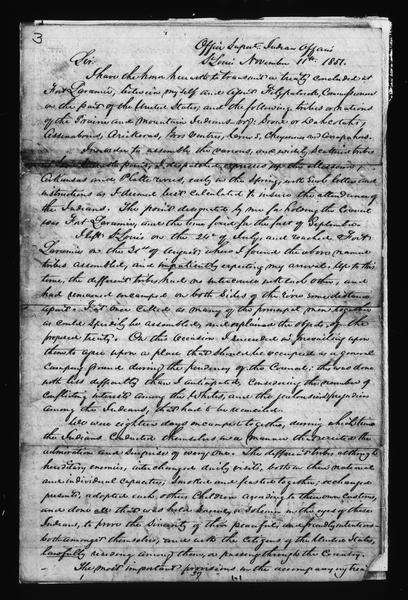 3
Office Supt. Indian Affairs
St. Louis November 11th 1851.
Sir,
I have the honor herewith to transmit a treaty concluded at
Fort Laramie, between myself and Agent Fitzpatrick, Commissioners
on the part of the United States, and the following tribes or nations
of the Prairie and Mountain Indians viz; Sioux or Dahcotahs,
Assinaboins, Arickoras, Gros Ventres, Crows, Cheyennes and Arrapahos.
In order to assemble the various, and widely scattered tribes
I despatched expresses up the Missouri,
Arkansas and Platte rivers, early in the Spring, with such letters and
instructions as I deemed best calculated to insure the attendance of
the Indians. The point designated by me for holding the Council
was Fort Laramie, and the time fixed for the first of September.
I left St. Louis on the 24th of July, and reached Fort
Laramie on the 31st of August, where I found the above named
tribes assembled, and impatiently expecting my arrival. Up to this
time, the different tribes had no intercourse with each other, and
had remained encamped on both sides of the River some distance
apart. I at once called as many of the principal men together
as could speedily be assembled, and explained the objects of the
proposed treaty. On this occasion I succeeded in prevailing upon
them to agree upon a place that should be occupied as a general
Camping ground during the pendency of the Council: this was done
with less difficulty than I anticipated, considering the number of
conflicting interests among the whites, and the jealousies & prejudices
among the Indians, that had to be reconciled.
We were eighteen days encamped together, during which time
the Indians conducted themselves in a manner that excited the
admiration and surprise of every one. The different tribes although
hereditary enemies, interchanged daily visits, both in their national
and individual capacities; smoked and feasted together; exchanged
presents; adopted each others children according to their own customs,
and done all that was held sacred or solemn in the eyes of these
Indians, to prove the sincerity of their peaceful and friendly intentions
both amongst themselves, and with the citizens of the United States,
lawfully residing among them, or passing through the Country.
The most important provisions in the accompanying treaty